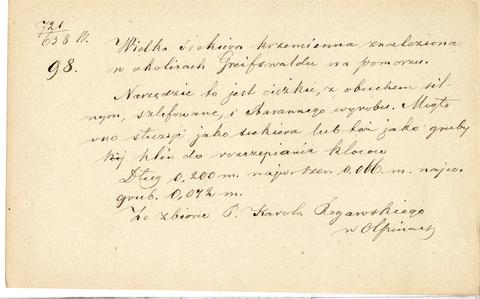 721
638 W.
98.
Wielka siekiera krzemienna znaleziona
w okolicach Greifswaldu na pomorzu.
Narzędzie to jest ciężkie, z obuchem sil-
nym, szlifowane, i starannego wyrobu. Mogło
ono służyć jako siekiera lub też jako gruby
klin do rozczepiania kloców
Dług 0,200 m. najw. szer. 0,066 m. najw.
grub. 0,042 m.
Ze zbiorów P. Karola Rogawskiego
w Ołpinach